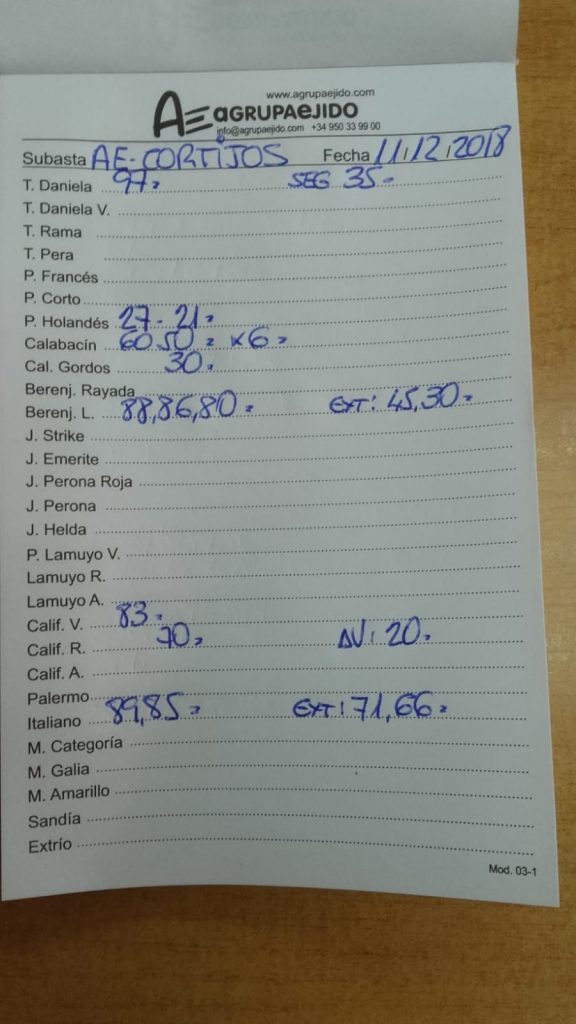 www.agrupaejido.com
AE AGRUPAEJIDO
info@agrupaejido.com +34 950 33 99 00
Subasta AE-CORTIJOS Fecha 11/12/2018
T. Daniela 97= SEG 35=
T. Daniela V.
T. Rama
T. Pera
P. Francés
P. Corto
P. Holandés 27-21=
Calabacín 60 50 = x6=
Cal. Gordos 30=
Berenj. Rayada
Berenj. L. 88,86,80= EXT: 45,30=
J. Strike
J. Emerite
J. Perona Roja
J. Perona
J. Helda
P. Lamuyo V.
Lamuyo R.
Lamuyo A.
Calif. V. 83=
Calif. R. 70= AV: 20=
Calif. A.
Palermo
Italiano 89,85= EXT: 71,66=
M. Categoría
M. Galia
M. Amarillo
Sandía
Extrío
Mod. 03-1